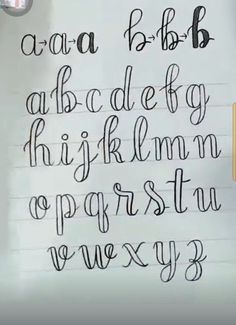 a→a→a b→b→b
a b c d e f g
h i j k l m n
o p q r s t u
v w x y z